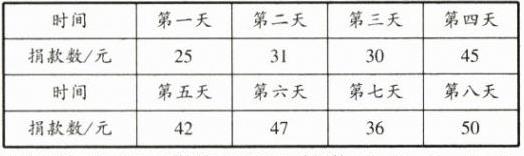 时间 第一天 第二天 第三天 第四天
捐款数/元 25 31 30 45
时间 第五天 第六天 第七天 第八天
捐款数/元 42 47 36 50